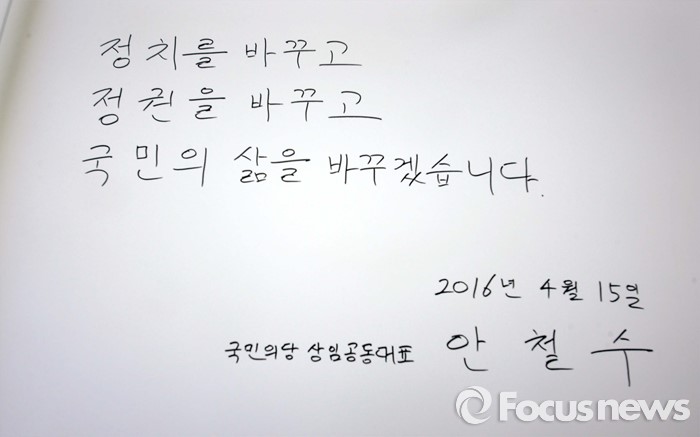 정치를 바꾸고
정권을 바꾸고
국민의 삶을 바꾸겠습니다.
2016년 4월 15일
국민의당 상임공동대표 안 철 수
Focusnews